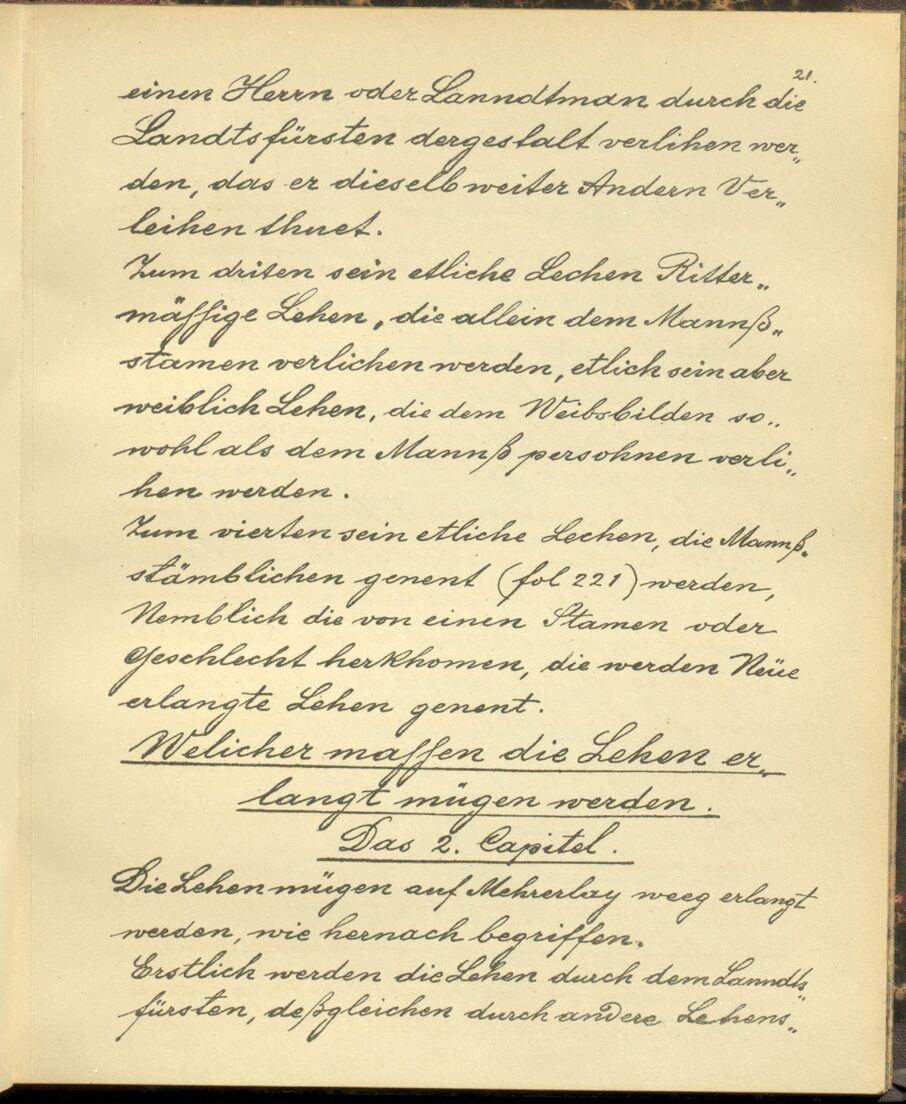 21.
einen Herrn oder Lanndtman durch die
Landtsfürsten dergestalt verlihen wer„
den, das er dieselb weiter Andern Ver„
leihen thuet.
Zum driten sein etliche Lechen Ritter„
mässige Lehen, die allein dem Mannß„
stamen verlichen werden, etlich sein aber
weiblich Lehen, die dem Weibsbilden so„
wohl als dem Mannß persohnen verli„
hen werden.
Zum vierten sein etliche Lechen, die Mannß„
stämblichen genent (fol 221) werden,
Nemblich die von einen Stamen oder
Geschlecht herkhomen, die werden Neüe
erlangte Lehen genent.
Welicher massen die Lehen er„
langt mügen werden.
Das 2. Capitel.
Die Lehen mügen auf Mehrerlay weeg erlangt
werden, wie hernach begriffen.
Erstlich werden die Lehen durch dem Lanndts„
fürsten, deßgleichen durch andere Lehens„